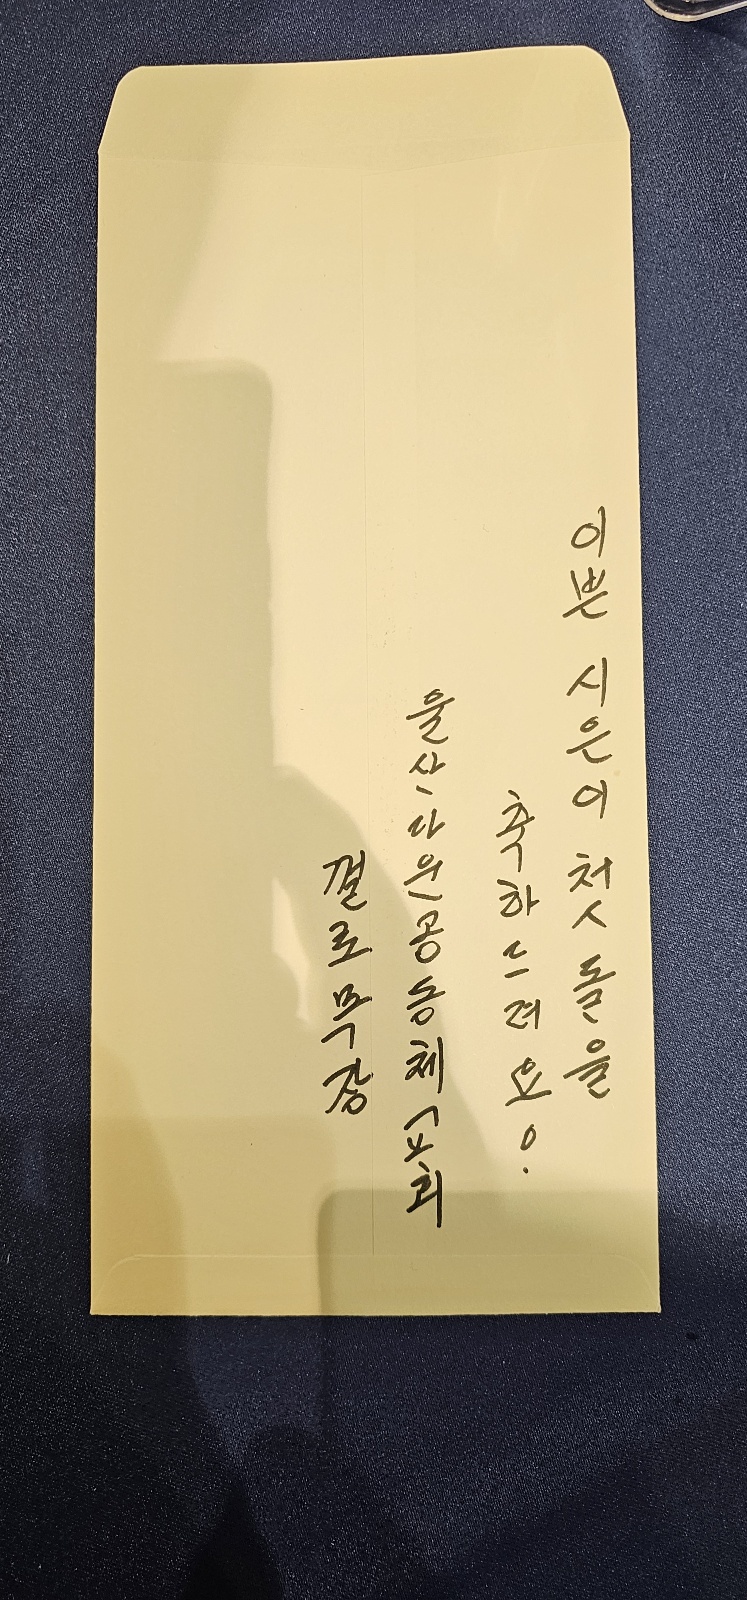 이쁜 시은이 첫돌을
축하드려요!
울산다운공동체 교회
껄로목장